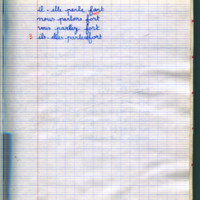 il. elle parle fort
nous parlons fort
vous parlez fort
ils. elles parlent fort